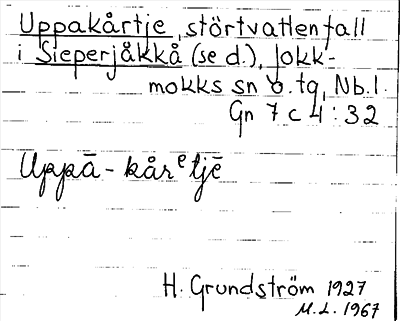 Uppakårtje, störtvattenfall
i Sieperjåkkå (se d.), Jokk-
mokks sn o. tg, Nb.l.
Gn 7 c 4 : 32
Uppā - kårᵉtjē
H. Grundström 1927
M.L. 1967